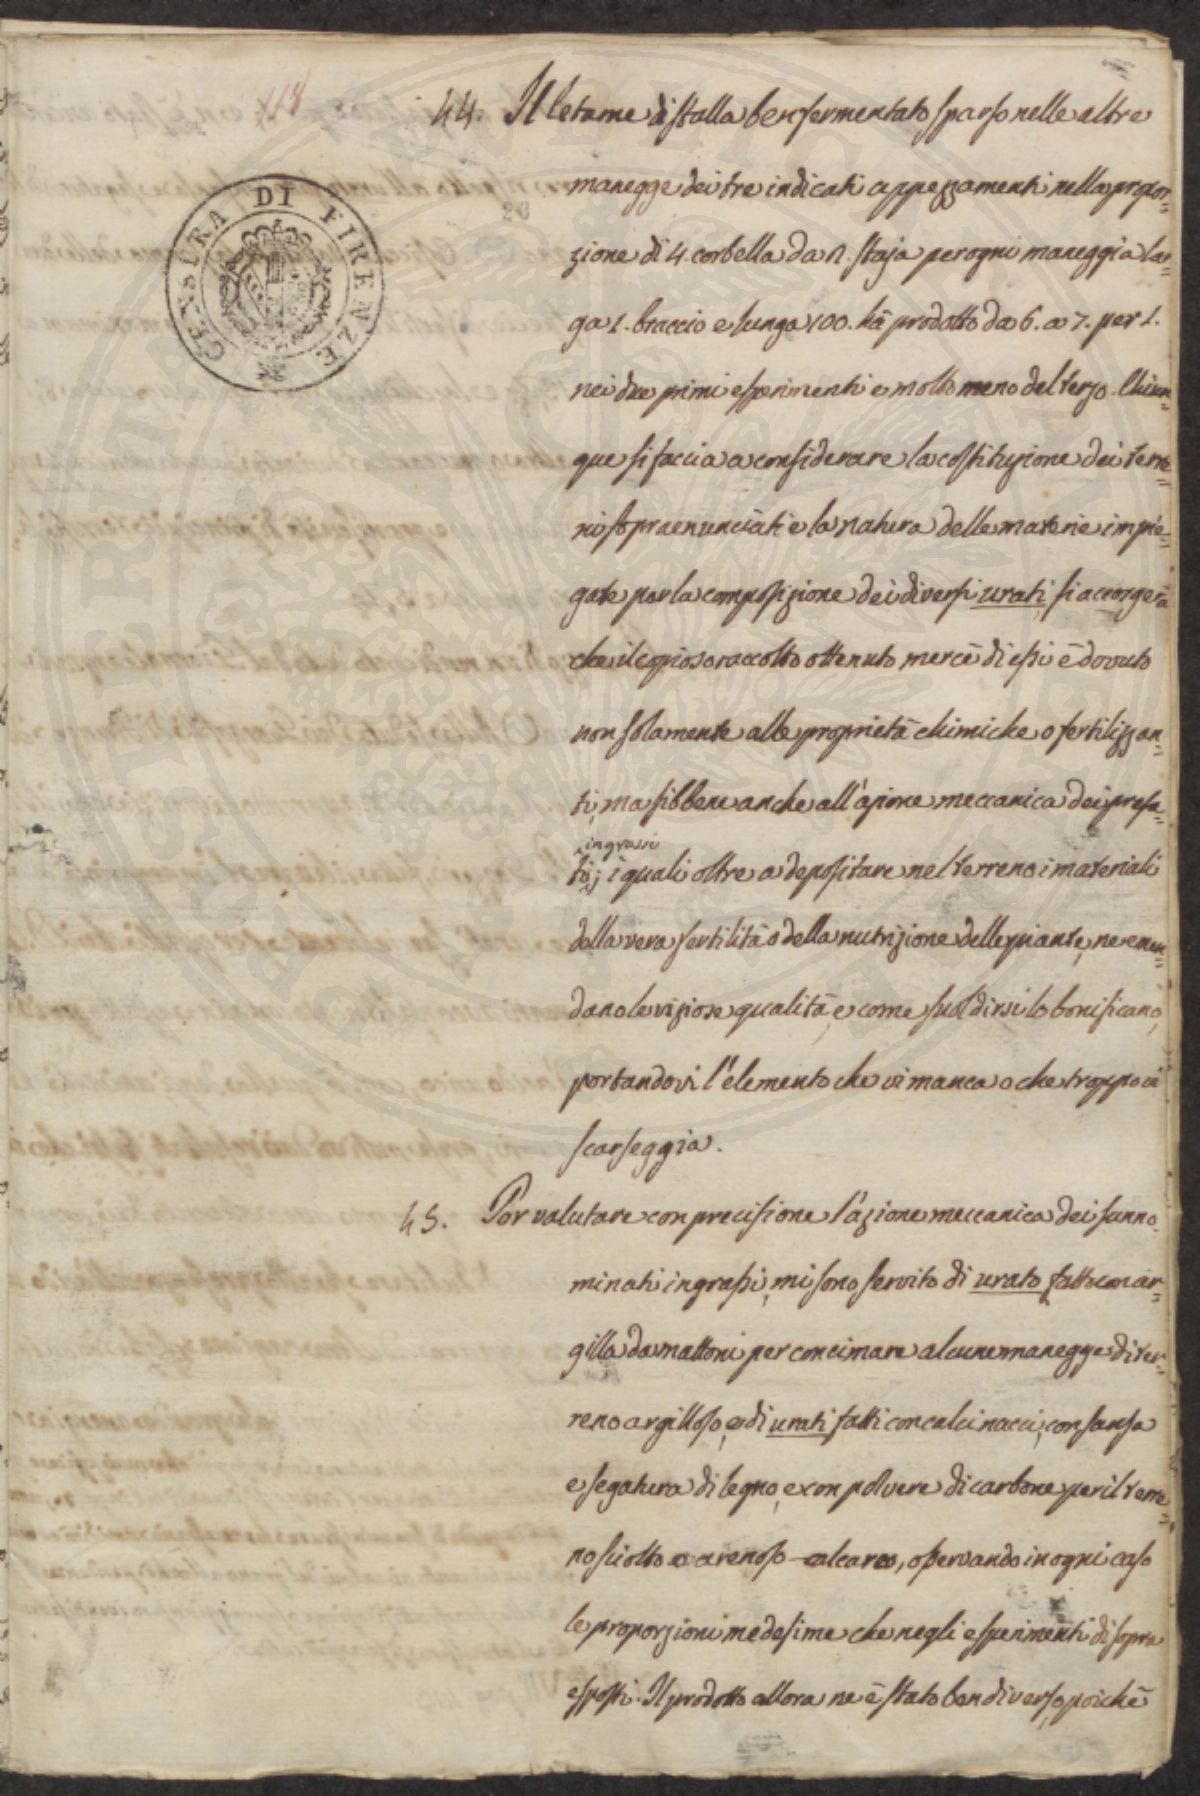 118
44. Il letame di stalla ben fermentato sparso nelle altre
manegge dei tre indicati appezzamenti nella propor=
zione di 4 corbella da 2. staja per ogni maneggia lar=
ga 1. braccio e lunga 100. hà prodotto da 6. a 7. per 1.
nei due primi esperimenti e molto meno del terzo. Chiun=
que si faccia a considerare la costituzione dei terre=
ni sopraenunciati e la natura delle materie impie=
gate per la composizione dei diversi urati, si accorgerà
che il copioso raccolto ottenuto mercè di essi è dovuto
non solamente alle proprietà chimiche o fertilizzan=
ti, ma sibbene anche all'azione meccanica dei prefa=
ingrassi
ti; i quali oltre a depositare nel terreno i materiali
della vera fertilità o della nutrizione delle piante, ne emen=
dano le viziose qualità, e come suol dirsi lo bonificano,
portandovi l'elemento che vi manca o che troppo vi
scarseggia.
45. Per valutare con precisione l'azione meccanica dei sunno
minati ingrassi, mi sono servito di urato fatto con ar=
gilla da mattoni per concimare alcune manegge di ter=
reno argilloso, e di urati fatti con calcinacci, con sansa
e segatura di legno, e con polvere di carbone per il terre=
no sciolto o arenoso-calcareo, osservando in ogni caso
le proporzioni medesime che negli esperimenti di sopra
esposti. Il prodotto allora ne è stato ben diverso, poichè
CENSURA DI FIRENZE
28